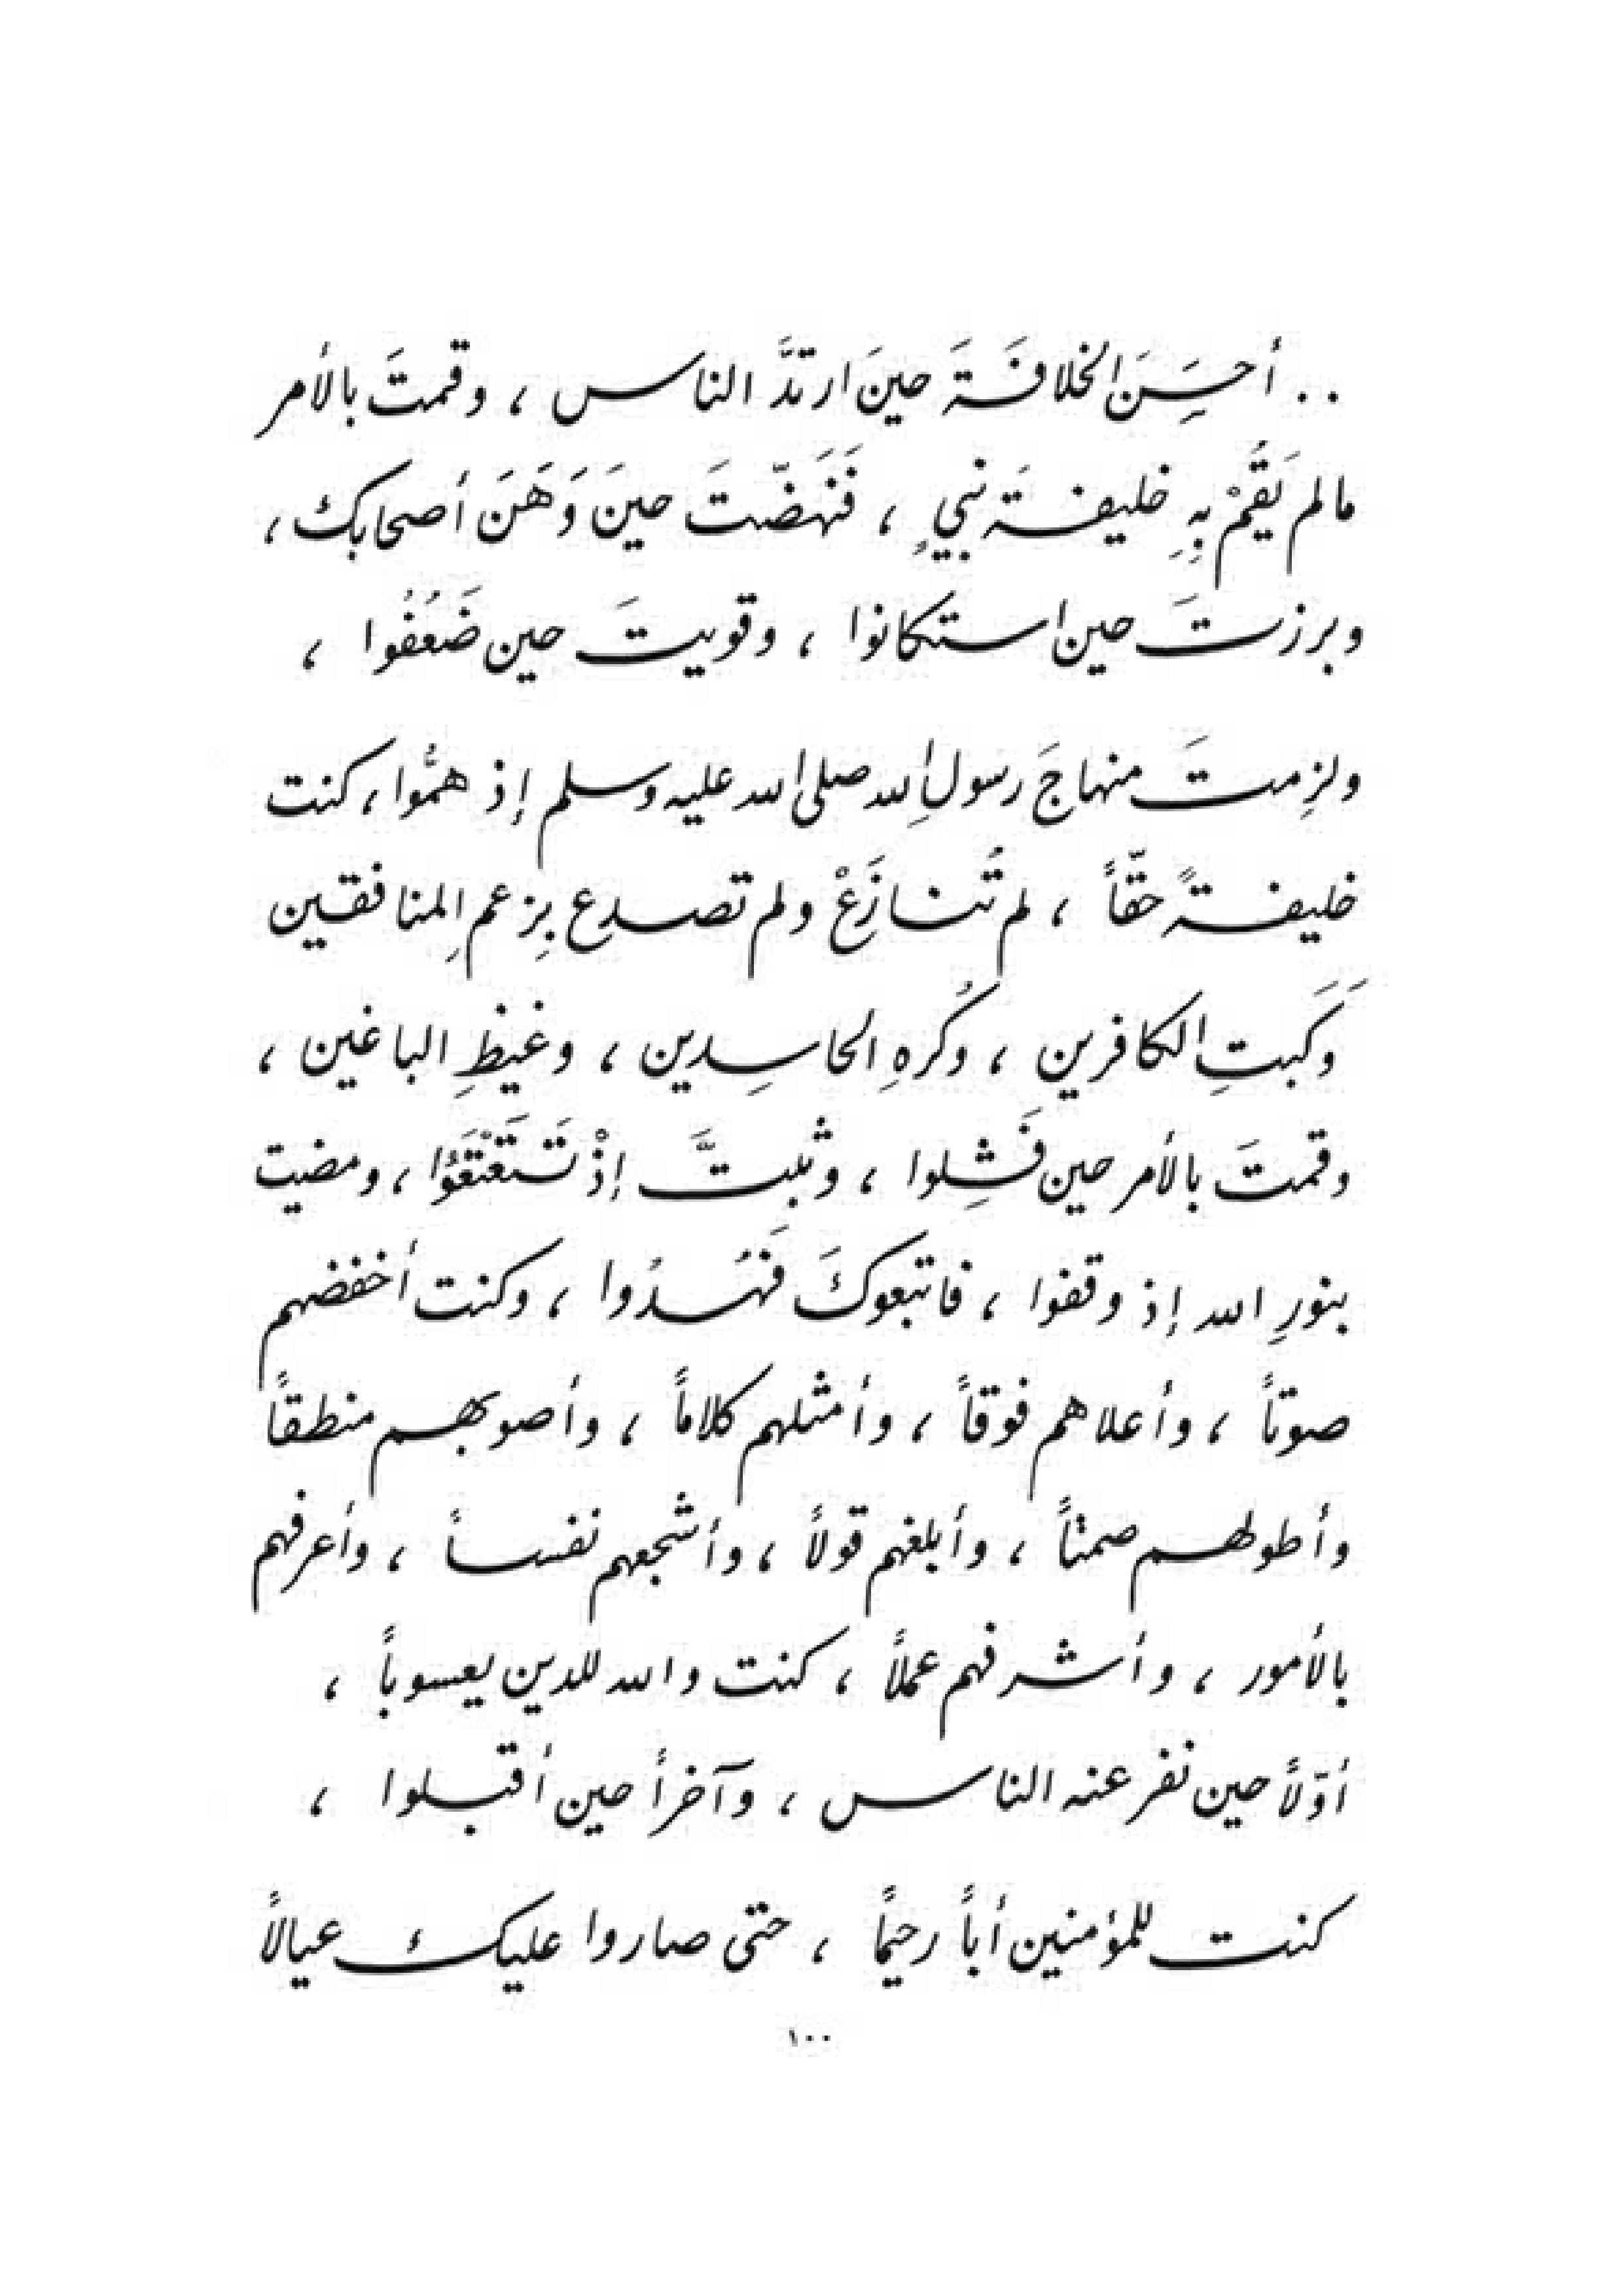 .. أحسَنَ الخلافَةَ حينَ ارتدَّ الناس ، وقمتَ بالأمر
مالم يَقُمْ بِهِ خليفةَ نبيٍ ، فَنَهَضّتَ حينَ وَهَنَ أصحابك ،
وبرزتَ حين استكانوا ، وقويتَ حين ضَعُفُوا ،
ولزِمتَ منهاجَ رسولِ الله صلى الله عليه وسلم إذ همُّوا ، كنت
خليفةً حقّاً ، لم تُنازَعْ ولم تصدع بِزعمِ المنافقين
وَكَبتِ الكافرين ، وكُرهِ الحاسِدين ، وغيظِ الباغين ،
وقمتَ بالأمر حين فَشِلوا ، وثبتَّ إذْ تَتَعْتَعَوُا ، ومضيت
بنورِ الله إذ وقفوا ، فاتبعوكَ فَهُدُوا ، وكنت أخفضهم
صوتاً ، وأعلاهم فوقاً ، وأمثلهم كلاماً ، وأصوبهم منطقاً
وأطولهم صمتاً ، وأبلغهم قولاً ، وأشجعهم نفساً ، وأعرفهم
بالأمور ، وأشرفهم عملاً ، كنت والله للدين يعسوباً ،
أوّلاً حين نفر عنه الناس ، وآخراً حين أقبلوا ،
كنت للمؤمنين أباً رحيماً ، حتى صاروا عليك عيالاً
١٠٠